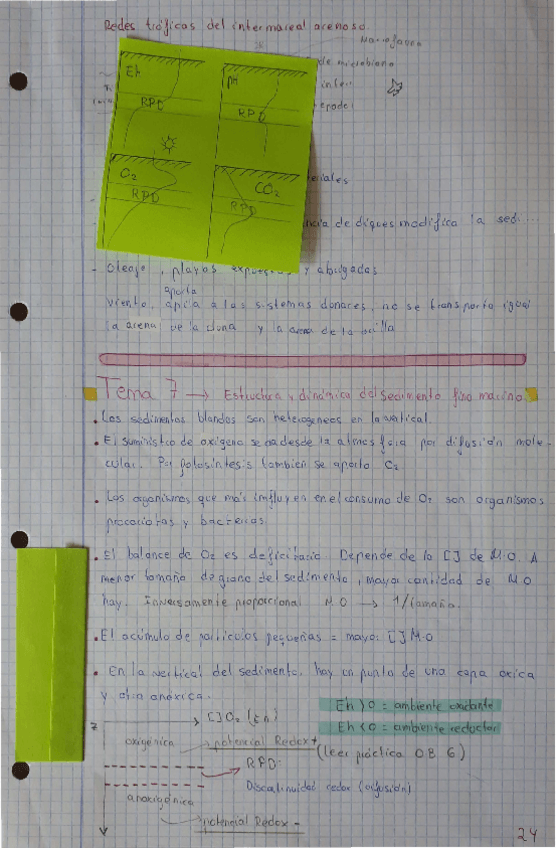 Redes tróficas del intermareal arenoso.
Macrofauna
de microbiano
Eh
pH
RPD
RPD
O₂
CO₂
RPD
RPD
de diques modifica la sed....
- Oleaje, playas y abrigadas
aporta
Viento, a los sistemas donares, no se transporta igual
la arena de la duna y la arena de la orilla
Tema 7 → Estructura y dinámica del sedimento fino marino
• Los sedimentos blandos son heterogeneos en la vertical.
• El suministro de oxigeno se da desde la atmosfera por difusión mole-
cular. Por fotosintesis tambien se aporta O₂
• Los organismos que más influyen en el consumo de O₂ son organismos
procariotas y bacterias
• El balance de O₂ es deficitario. Depende de la [] de M.O. A
menor tamaño de grano del sedimento, mayor cantidad de MO
hay. Inversamente proporcional MO → 1/tamaño.
• El acúmulo de partículas pequeñas = mayor [] M.O
• En la vertical del sedimento, hay un punto de una capa oxica
y otra anóxica.
[] O₂ (Eh)
Eh > 0 = ambiente oxidante
Eh < 0 = ambiente reductor
oxigénica
potencial Redox +
(leer práctica OB 6)
RPD:
Discontinuidad redox (difusión)
anoxigénica
potencial Redox -
24